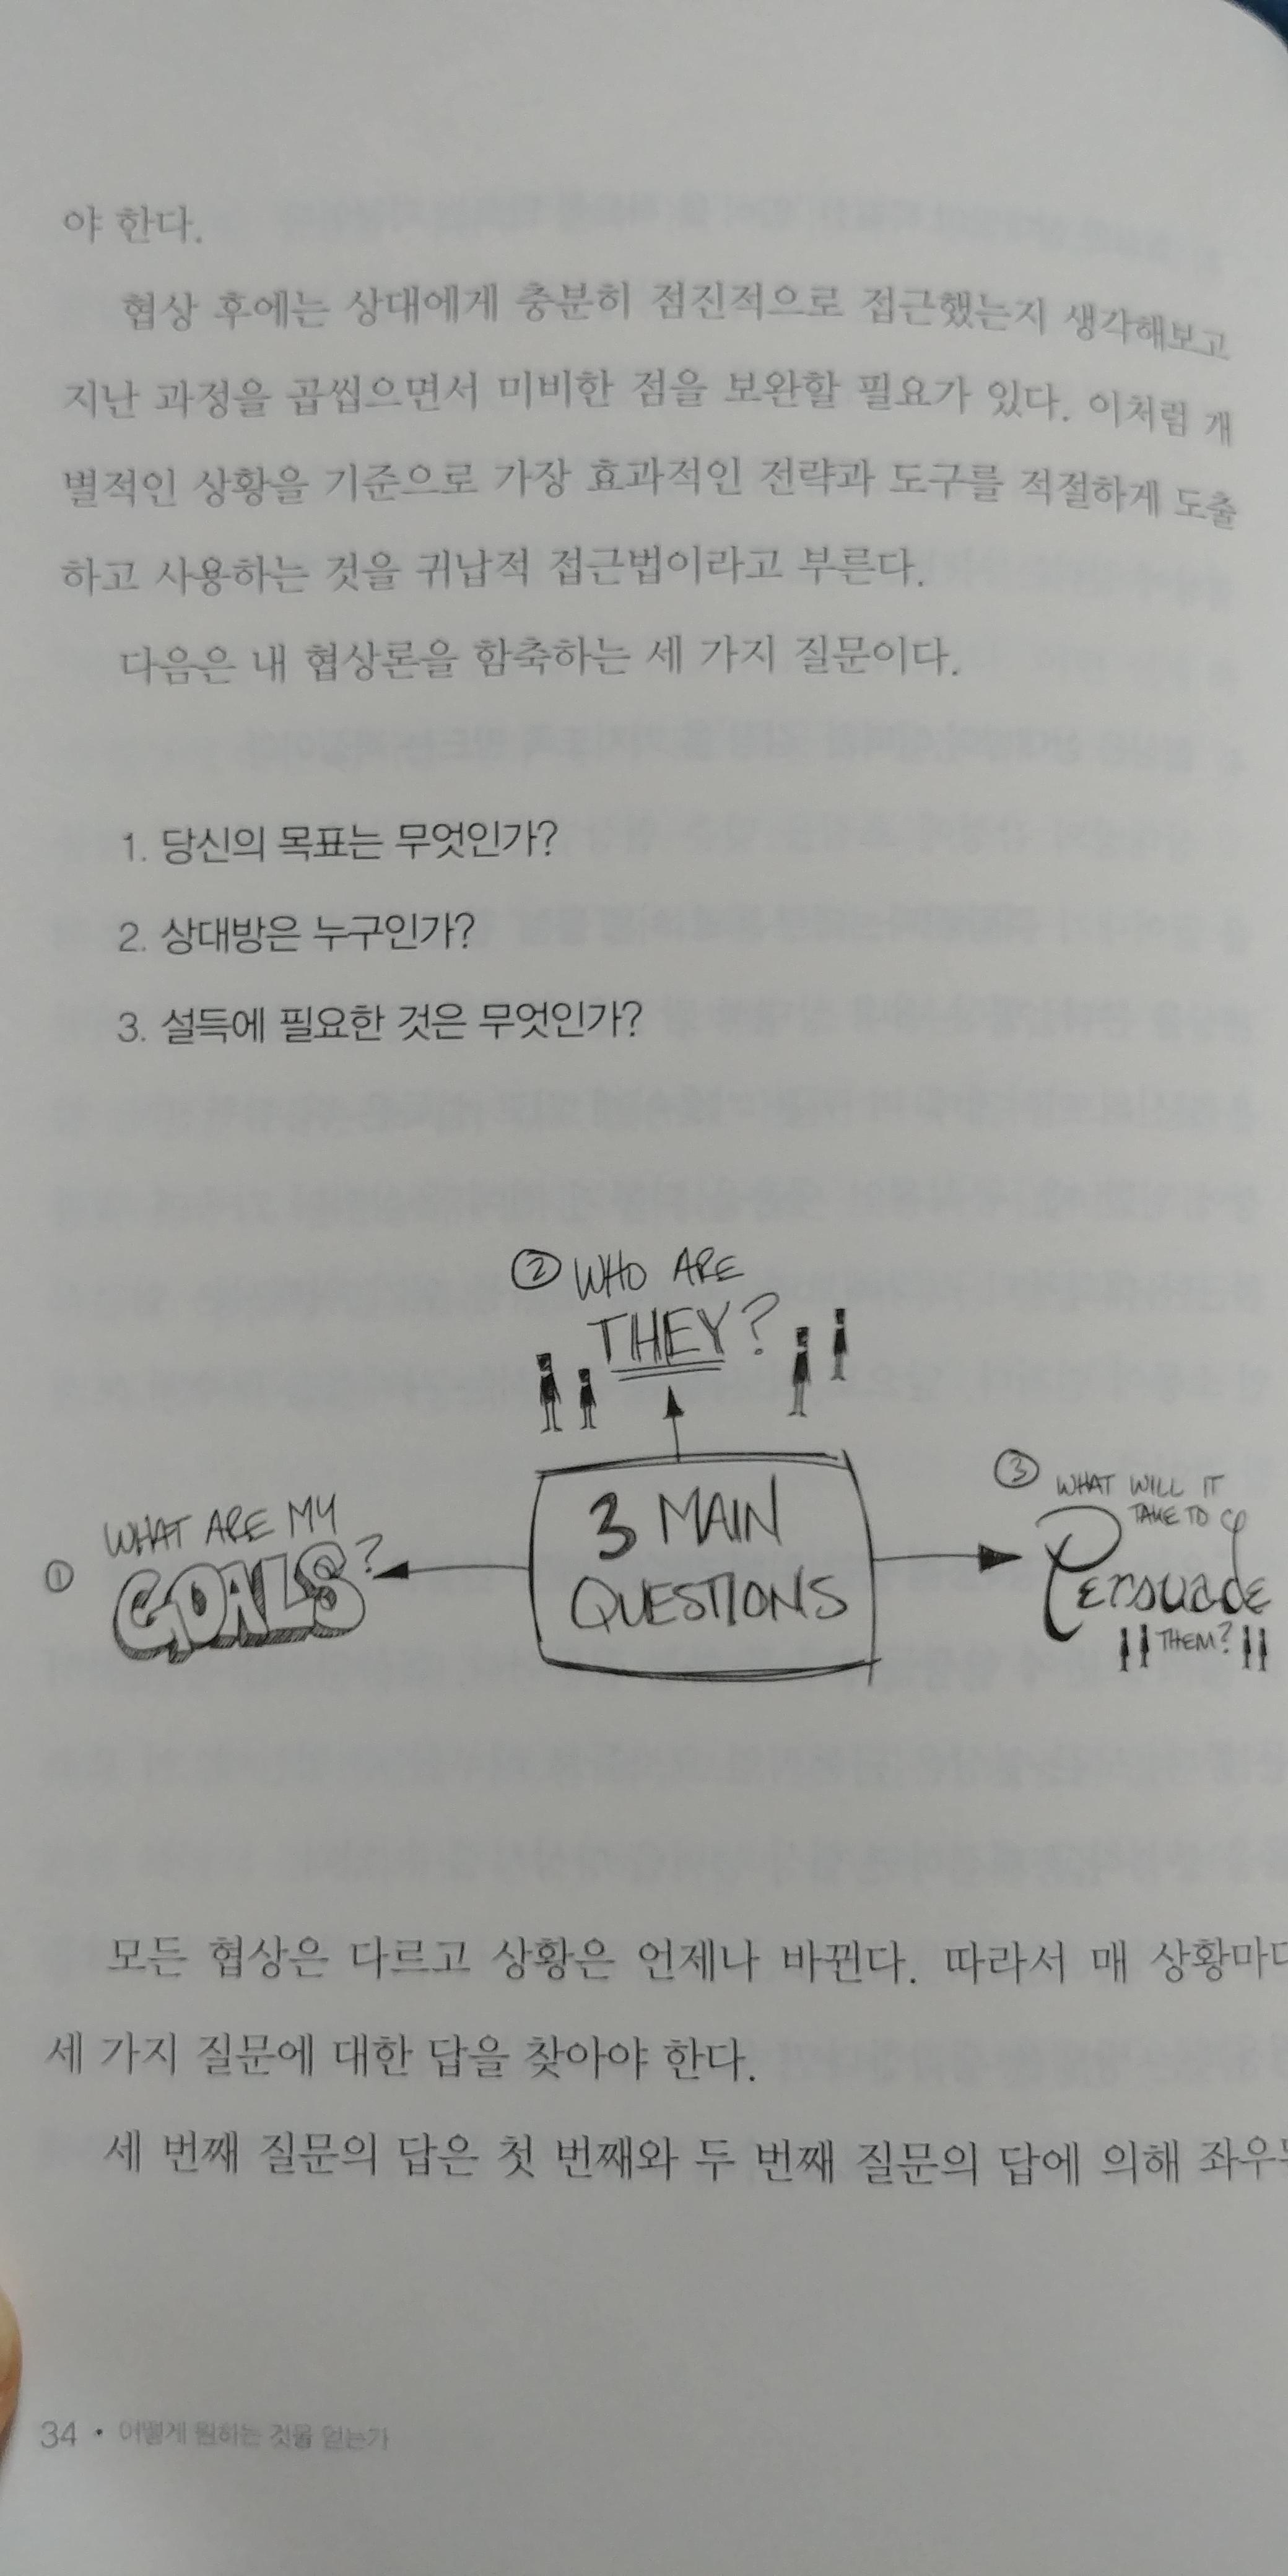 야 한다.
협상 후에는 상대에게 충분히 점진적으로 접근했는지 생각해보고
지난 과정을 곱씹으면서 미비한 점을 보완할 필요가 있다. 이처럼 개
별적인 상황을 기준으로 가장 효과적인 전략과 도구를 적절하게 도출
하고 사용하는 것을 귀납적 접근법이라고 부른다.
다음은 내 협상론을 함축하는 세 가지 질문이다.
1. 당신의 목표는 무엇인가?
2. 상대방은 누구인가?
3. 설득에 필요한 것은 무엇인가?
② WHO ARE
THEY?
3 MAIN
QUESTIONS
① WHAT ARE MY
GOALS?
③ WHAT WILL IT
TAKE TO
Persuade
THEM?
모든 협상은 다르고 상황은 언제나 바뀐다. 따라서 매 상황마다
세 가지 질문에 대한 답을 찾아야 한다.
세 번째 질문의 답은 첫 번째와 두 번째 질문의 답에 의해 좌우
34 • 어떻게 원하는 것을 얻는가